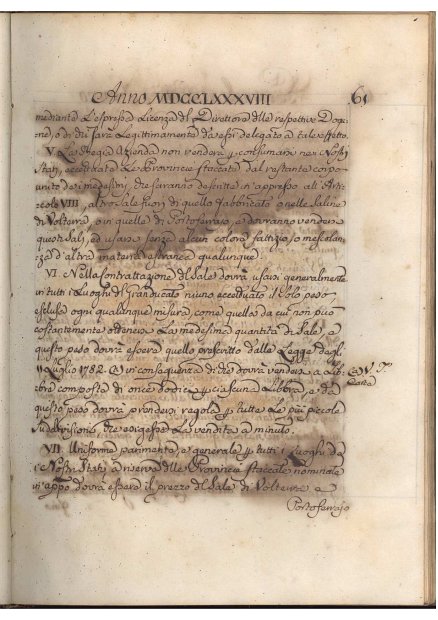 Anno MDCCLXXXVIII 61
mediante L'espressa Licenza del Direttore delle respettive Dogane
ne, o di chi sarà Legittimamente da essi delegato a tale effetto.
V. La Regia Azienda non venderà p consumarsi nei Nostri
Stati, eccettuate Le Provincie staccate dal restante corpo
unito dei medesimi, che saranno descritte in appresso all'Arti=
colo VIII, altro Sale fuori di quello fabbricato o nelle Saline
di Volterra, o in quelle di Portoferraio, e dovranno vendersi
questi Sali, ed usarsi senza alcun colore fattizio, o mescolan=
za d'altra materia estranea qualunque.
VI. Nella contrattazione del Sale dovrà usarsi generalmente
in tutti i Luoghi del Granducato niuno eccettuato il Solo peso
esclusa ogni qualunque misura, come quella da cui non può
costantemente ottenersi La medesima quantità di Sale, e
questo peso dovrà essere quello prescritto dalla Legge degli
11 Luglio 1782. in conseguenza di che dovrà vendersi a Lib=
bra composta di once dodici p ciascuna Libbra, e da
questo peso dovrà prendersi regola p tutte Le più piccole
Suddivisioni che esigesse La vendita a minuto.
VII. Uniforme parimente, e generale p tutti i Luoghi dei
Nostri Stati, a riserva delle Provincie staccate nominate
in appo dovrà essere il prezzo del Sale di Volterra e
Portoferrajo